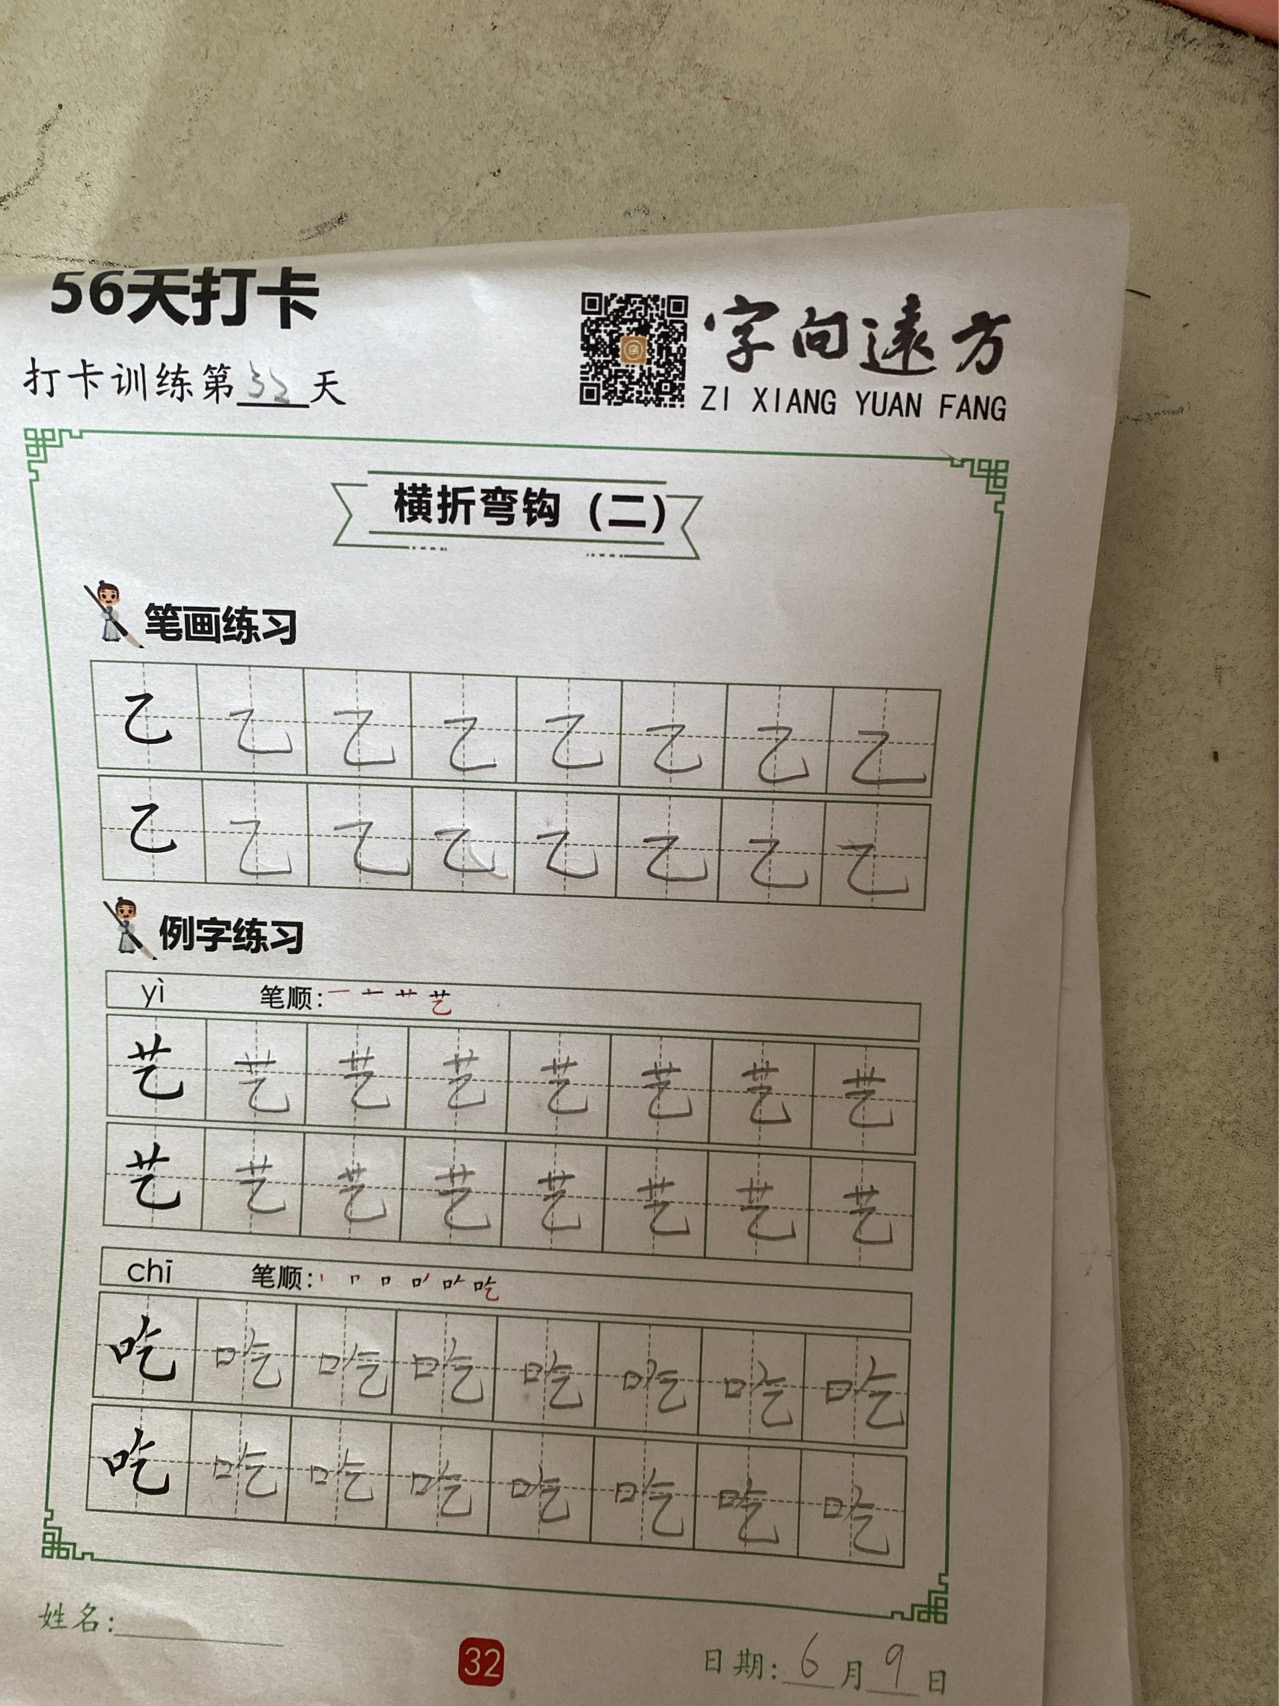 56天打卡
字向遠方
打卡训练第32天
ZI XIANG YUAN FANG
横折弯钩（二）
笔画练习
乙 乙 乙 乙 乙 乙 乙 乙
乙 乙 乙 乙 乙 乙 乙 乙
例字练习
yì 笔顺: 一 十 艹 艺
艺 艺 艺 艺 艺 艺 艺 艺
艺 艺 艺 艺 艺 艺 艺 艺
chī 笔顺:
吃 吃 吃 吃 吃 吃 吃 吃
吃 吃 吃 吃 吃 吃 吃 吃
姓名:
32
日期: 6月9日